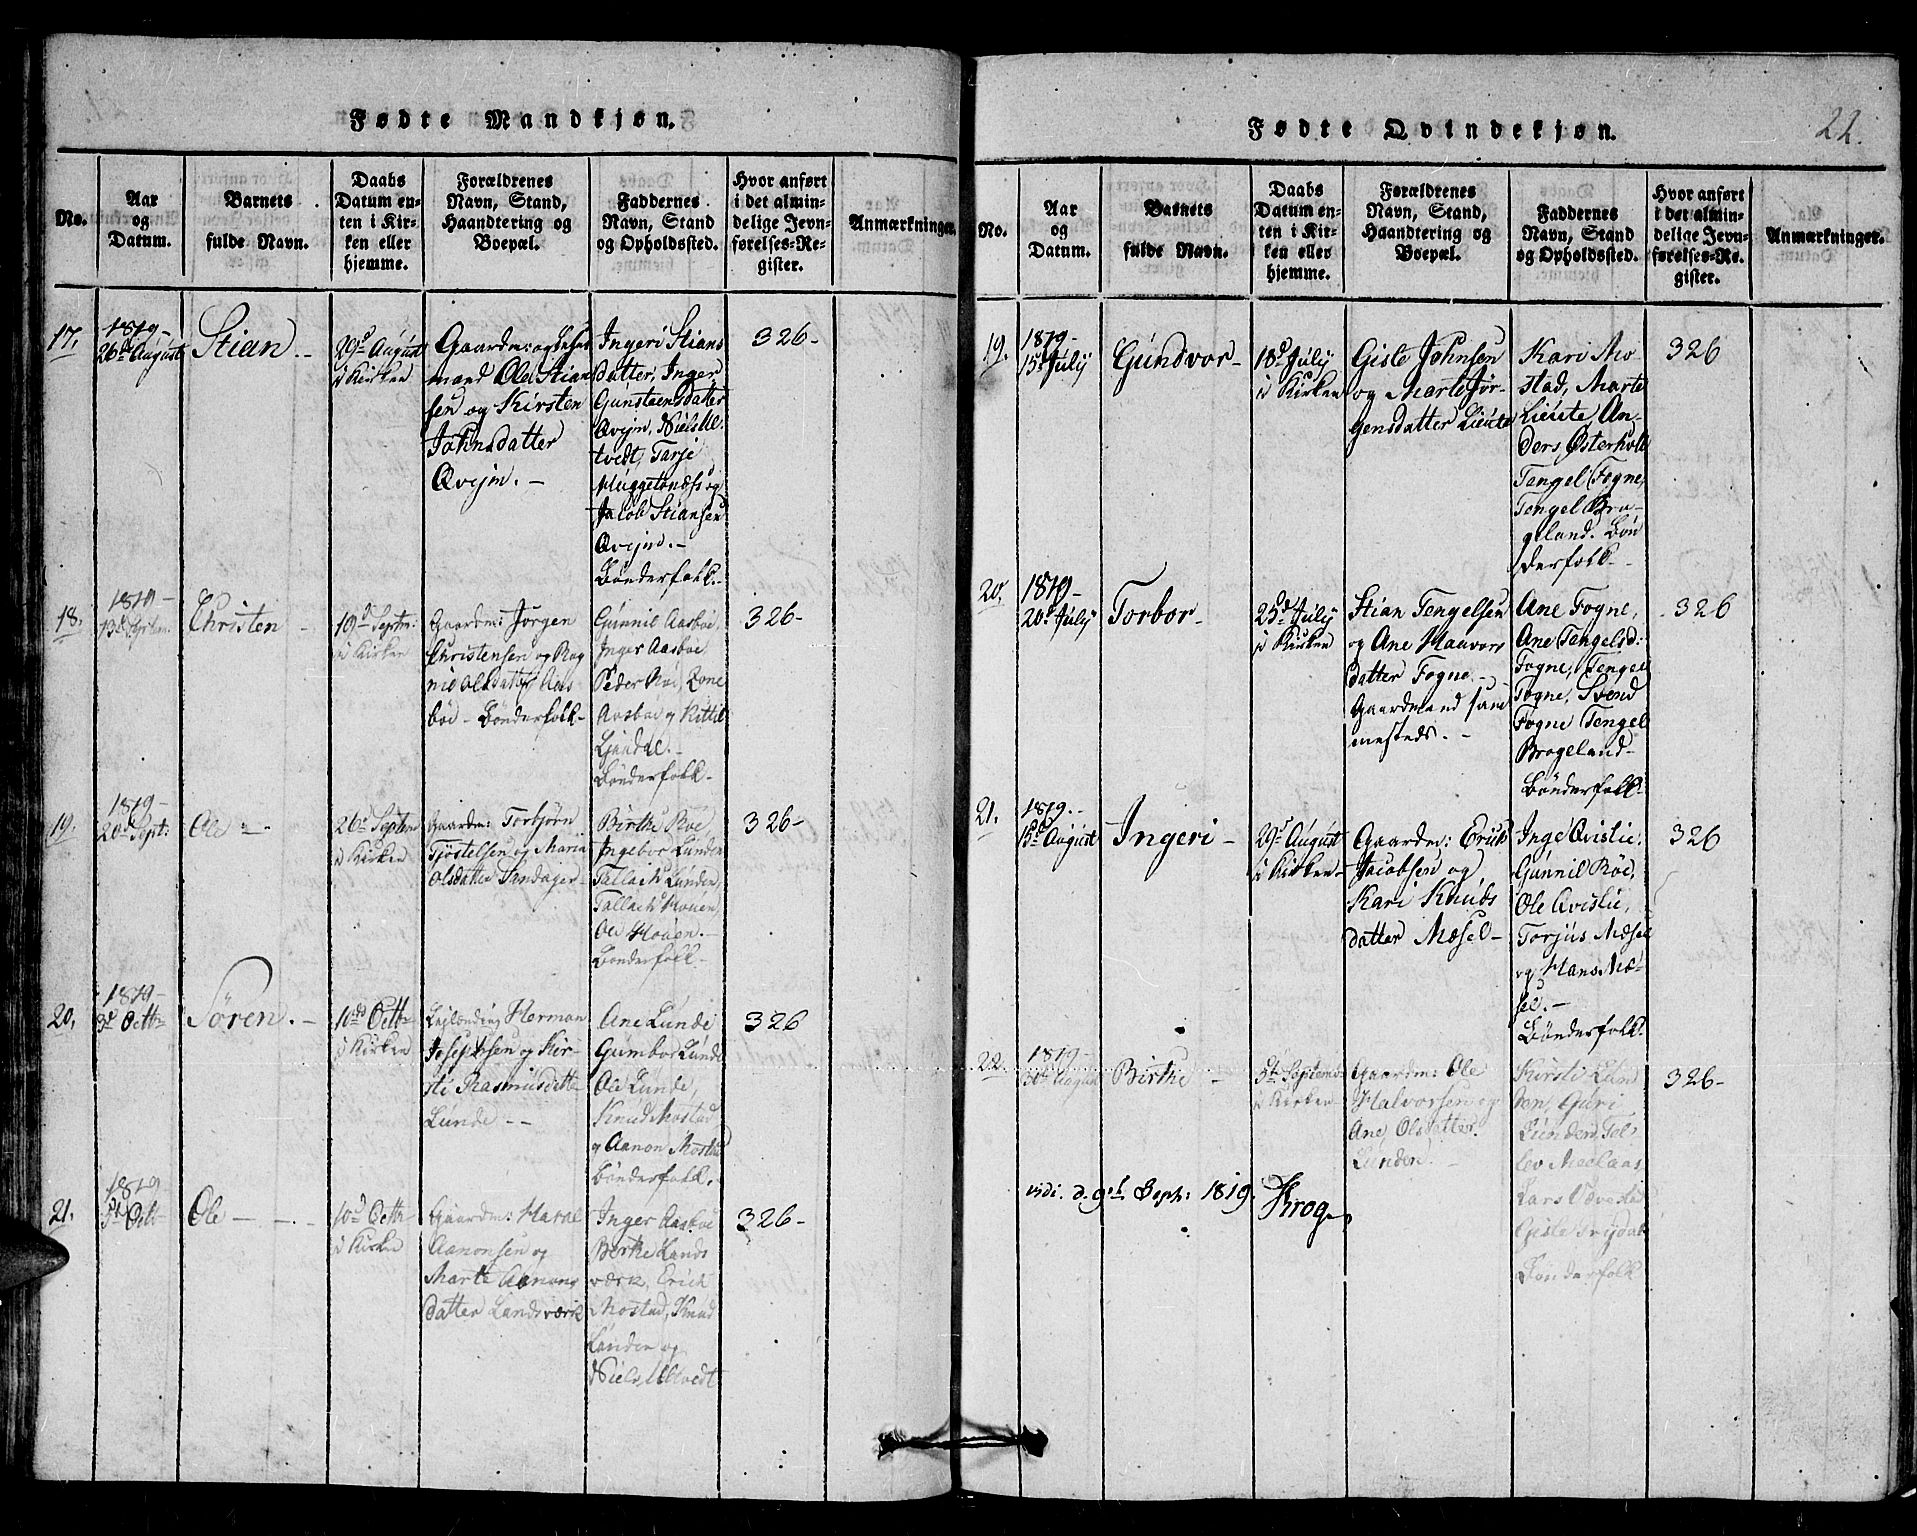 Fødte Mandkjøn.
No.
Aar
og
Datum.
Barnets
fulde Navn.
Daabs
Datum en-
ten i Kir-
ken eller
hjemme.
Forældrenes
Navn, Stand,
Haandtering og
Boepæl.
Faddernes
Navn, Stand
og Opholdssted.
Hvor anført
i det almin-
delige Jevn-
førelses-Re-
gister.
Anmærkninger.
17.
1819-
26de August
Stian.-
29d August
i Kirken
Gaardm: og
mand Ole Stian
sen og Kirsten
Johnsdatter
Qvejm.-
Ingeri Stians
datter, Inger
Gunstensdatter
Qvejm, Niels Ul-
tvedt, Tarje
og
Jacob Stiansen
Qvejm.-
Bønderfolk.-
326-
18.
1819-
13de Septem.
Christen
19d Septm:
i Kirken
Gaardm: Jørgen
Christensen og Rag
nild Olsdatter Aas-
böe- Bønderfolk-
Gunnil Aasböe,
Inger Aasböe,
Peder Röe,
Aasböe og Kittil
Bønderfolk-
326-
19.
1819-
20d Sept:
Ole-
26d Septem
i Kirken
Gaardm: Torbjörn
Tjöstelsen og Maria
Olsdatter Sandager-
Birthe Roe,
Ingebor Lunden
Tallach Lunden,
Tallach Houen,
Ole Houen.-
Bønderfolk-
326-
20.
1819-
3d Octb-
Sören.-
10nd Octb-
i Kirken
Lejlending Herman
Josephsen og Kir-
sti Rasmusdatter
Lunde--
Ane Lunde
Gumbor Lunde
Ole Lunde,
Knud Mostad
og Aanon Mostad
Bønderfolk.
326
21.
1819
5t Octb-
Ole--.-
10d Octb-
i Kirken
Gaardm: Haral
Aanonsen og
Marte Aanons
datter Landsværk
Inger Aasböe
Berthe Lands
værk, Erich
Mostad, Knud
Lunden og
Niels Ultvedt
326-
Fødte Qvindekjøn.
22.
No.
Aar
og
Datum.
Barnets
fulde Navn.
Daabs
Datum en-
ten i Kir-
ken eller
hjemme.
Forældrenes
Navn, Stand,
Haandtering og
Boepæl.
Faddernes
Navn, Stand
og Opholdssted.
Hvor anført
i det almin-
delige Jevn-
førelses-Re-
gister.
Anmærkninger.
19.
1819-
15d July
Gundvor-
18d July
i Kirken
Gisle Johnsen
og Marte Jör-
gensdatter Lieute
Kari Mo-
stad, Marte
Lieute An-
ders Østerholt
Tengel Fogne,
Tengel Bra-
geland. Bön
derfolk-
326
20.
1819-
20d July
Torbor-
25d July
i Kirken
Stian Tengelsen
og Ane Haavors
datter Fogne.-
Gaardmand sam
mesteds.-
Ane Fogne,
Ane Tengelsd:
Fogne, Tengel
Fogne, Svend
Fogne Tengel
Brageland-
Bønderfolk-
326
21.
1819.-
15d August
Ingeri-
29d August
i Kirken-
Gaardm: Erich
Jacobsen og
Kari Knuds
datter Mæsel-
Inge Qvislie,
Gunnil Röe,
Ole Qvislie,
Torjus Mæsel
og Hans Mæ-
sel.-
Bønderfolk.
326
22.
1819-
30d August
Birthe-
5te Septemb-
i Kirken-
Gaardm: Ole
Halvorsen og
Ane Olsdatter
Lunden.-
Kirsti Lun
den, Guri
Lunden, Tel-
lev Meelaas
Lars Udvestad
Gisle
Bønderfolk
326-
vidi. d. 9d Sept: 1819.
Krog